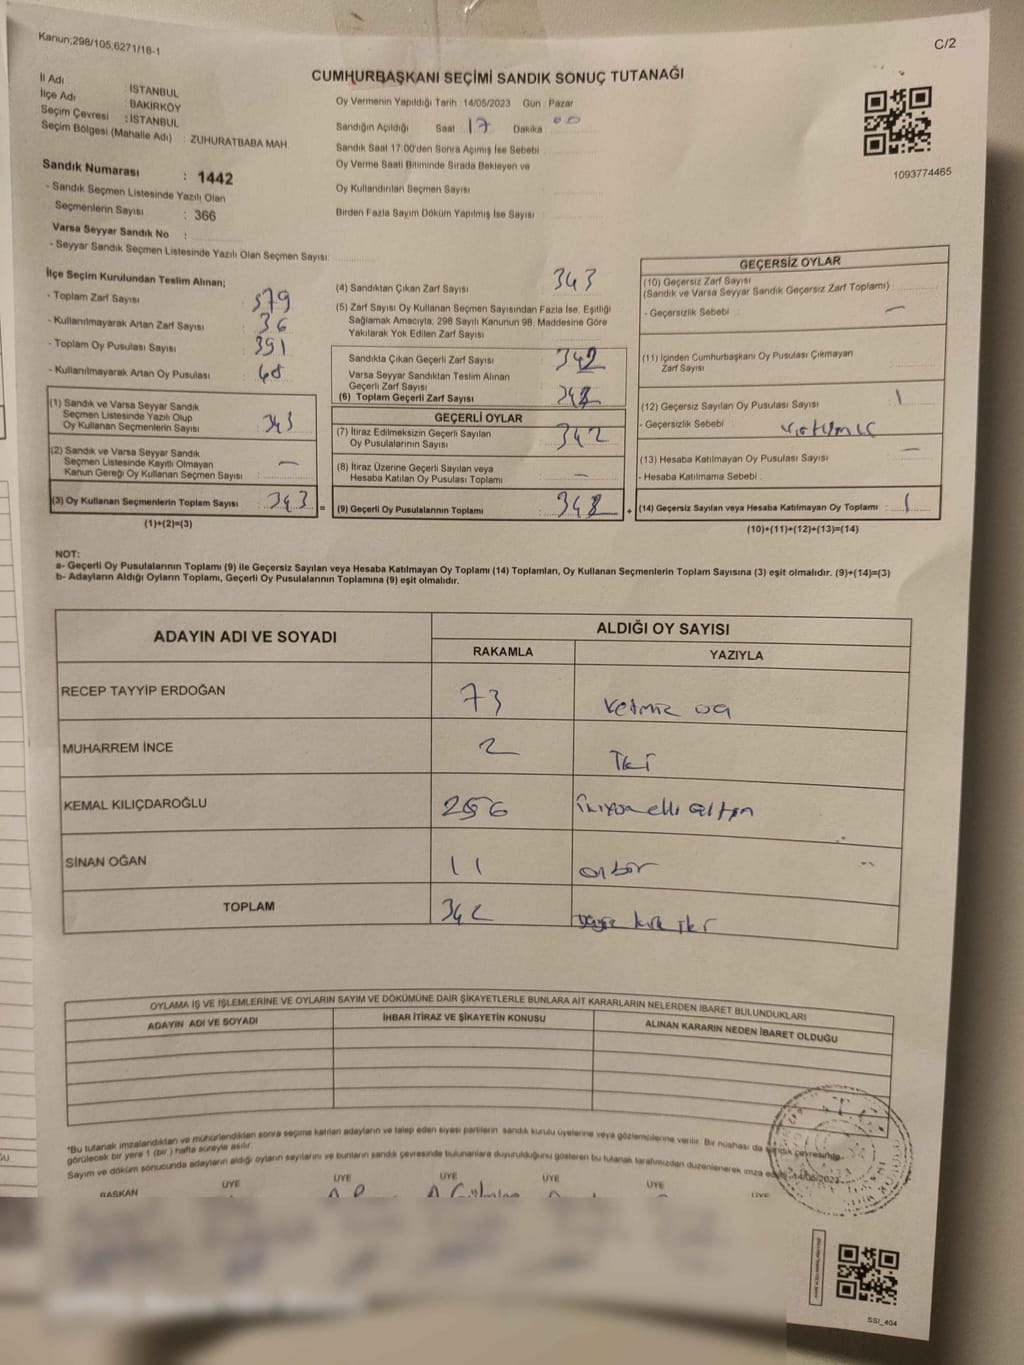 Kanun,298/105,6271/18-1
C/2
CUMHURBAŞKANI SEÇİMİ SANDIK SONUÇ TUTANAĞI
İl Adı : İSTANBUL
İlçe Adı : BAKIRKÖY
Seçim Çevresi : İSTANBUL
Seçim Bölgesi (Mahalle Adı) : ZUHURATBABA MAH.
Oy Vermenin Yapıldığı Tarih : 14/05/2023 Gün : Pazar
Sandığın Açıldığı Saat : 17 Dakika : 00
Sandık Saat 17:00'den Sonra Açımış İse Sebebi :
Oy Verme Saati Bitiminde Sırada Bekleyen ve
Oy Kullandırılan Seçmen Sayısı :
Birden Fazla Sayım Döküm Yapılmış İse Sayısı :
1093774465
Sandık Numarası : 1442
- Sandık Seçmen Listesinde Yazılı Olan
Seçmenlerin Sayısı : 366
Varsa Seyyar Sandık No :
- Seyyar Sandık Seçmen Listesinde Yazılı Olan Seçmen Sayısı:
İlçe Seçim Kurulundan Teslim Alınan;
- Toplam Zarf Sayısı : 379
- Kullanılmayarak Artan Zarf Sayısı : 36
- Toplam Oy Pusulası Sayısı : 391
- Kullanılmayarak Artan Oy Pusulası : 48
(1) Sandık ve Varsa Seyyar Sandık
Seçmen Listesinde Yazılı Olup
Oy Kullanan Seçmenlerin Sayısı : 343
(2) Sandık ve Varsa Seyyar Sandık
Seçmen Listesinde Kayıtlı Olmayan
Kanun Gereği Oy Kullanan Seçmen Sayısı : —
(3) Oy Kullanan Seçmenlerin Toplam Sayısı : 343
(1)+(2)=(3)
(4) Sandıktan Çıkan Zarf Sayısı : 343
(5) Zarf Sayısı Oy Kullanan Seçmen Sayısından Fazla İse, Eşitliği
Sağlamak Amacıyla; 298 Sayılı Kanunun 98. Maddesine Göre
Yakılarak Yok Edilen Zarf Sayısı :
Sandıkta Çıkan Geçerli Zarf Sayısı : 342
Varsa Seyyar Sandıktan Teslim Alınan
Geçerli Zarf Sayısı :
(6) Toplam Geçerli Zarf Sayısı : 342
GEÇERLİ OYLAR
(7) İtiraz Edilmeksizin Geçerli Sayılan
Oy Pusulalarının Sayısı : 342
(8) İtiraz Üzerine Geçerli Sayılan veya
Hesaba Katılan Oy Pusulası Toplamı : —
= (9) Geçerli Oy Pusulalarının Toplamı : 342
GEÇERSİZ OYLAR
(10) Geçersiz Zarf Sayısı
(Sandık ve Varsa Seyyar Sandık Geçersiz Zarf Toplamı) :
- Geçersizlik Sebebi : —
(11) İçinden Cumhurbaşkanı Oy Pusulası Çıkmayan
Zarf Sayısı :
(12) Geçersiz Sayılan Oy Pusulası Sayısı : 1
- Geçersizlik Sebebi :
(13) Hesaba Katılmayan Oy Pusulası Sayısı : —
- Hesaba Katılmama Sebebi :
+ (14) Geçersiz Sayılan veya Hesaba Katılmayan Oy Toplamı : 1
(10)+(11)+(12)+(13)=(14)
NOT:
a- Geçerli Oy Pusulalarının Toplamı (9) ile Geçersiz Sayılan veya Hesaba Katılmayan Oy Toplamı (14) Toplamları, Oy Kullanan Seçmenlerin Toplam Sayısına (3) eşit olmalıdır. (9)+(14)=(3)
b- Adayların Aldığı Oyların Toplamı, Geçerli Oy Pusulalarının Toplamına (9) eşit olmalıdır.
ADAYIN ADI VE SOYADI ALDIĞI OY SAYISI
RAKAMLA YAZIYLA
RECEP TAYYİP ERDOĞAN 73 Yetmiş üç
MUHARREM İNCE 2 İki
KEMAL KILIÇDAROĞLU 256 ikiyüz elli altı
SİNAN OĞAN 11 onbir
TOPLAM 342 üçyüz kırk iki
OYLAMA İŞ VE İŞLEMLERİNE VE OYLARIN SAYIM VE DÖKÜMÜNE DAİR ŞİKAYETLERLE BUNLARA AİT KARARLARIN NELERDEN İBARET BULUNDUKLARI
ADAYIN ADI VE SOYADI İHBAR İTİRAZ VE ŞİKAYETİN KONUSU ALINAN KARARIN NEDEN İBARET OLDUĞU
*Bu tutanak imzalandıktan ve mühürlendikten sonra seçime katılan adayların ve talep eden siyasi partilerin sandık kurulu üyelerine veya gözlemcilerine verilir. Bir nüshası da sandık çevresinde
görülecek bir yere 1 (bir) hafta süreyle asılır.
Sayım ve döküm sonucunda adayların aldığı oyların sayılarını ve bunların sandık çevresinde bulunanlara duyurulduğunu gösteren bu tutanak tarafımızdan düzenlenerek imza edildi. 14/05/2023
BAŞKAN ÜYE ÜYE ÜYE ÜYE ÜYE ÜYE
SSİ_404